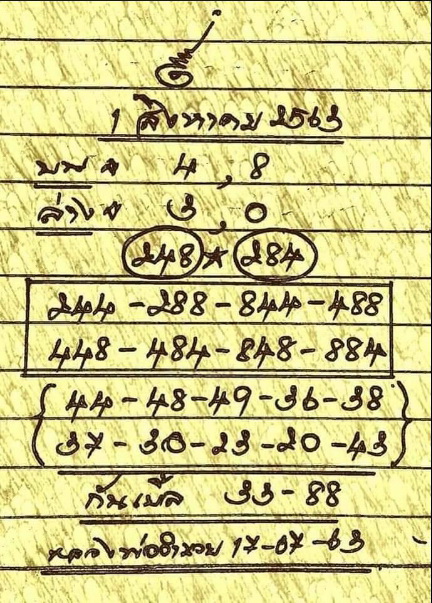 1 สิงหาคม 2563
บน + 4, 8
ล่าง + 3, 0
248 * 284
244 - 288 - 844 - 488
448 - 484 - 848 - 884
44 - 48 - 49 - 36 - 38
37 - 30 - 23 - 20 - 43
กันเบิ้ล 33 - 88
หลวงพ่ออำนวย 17-07-63